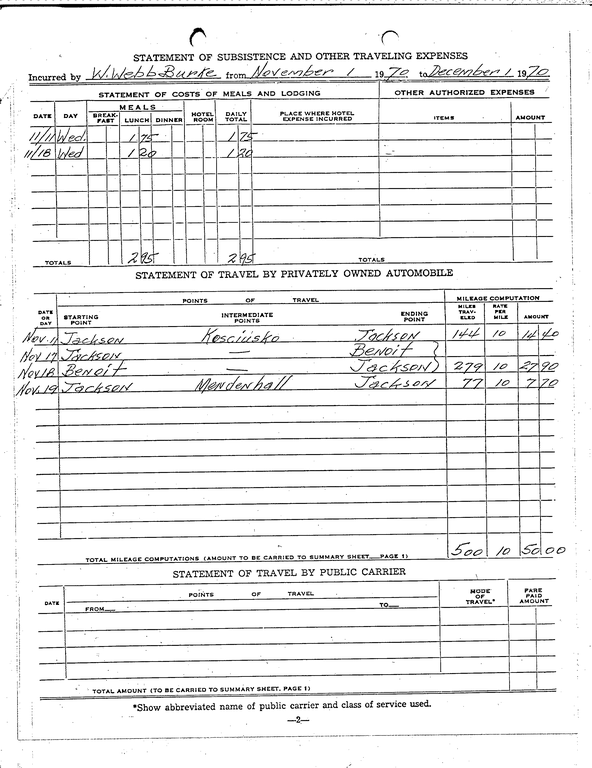 STATEMENT OF SUBSISTENCE AND OTHER TRAVELING EXPENSES
Incurred by W. Webb Burke from November 1 1970 to December 1 1970
STATEMENT OF COSTS OF MEALS AND LODGING OTHER AUTHORIZED EXPENSES
DATE DAY MEALS HOTEL ROOM DAILY TOTAL PLACE WHERE HOTEL EXPENSE INCURRED ITEMS AMOUNT
BREAK-FAST LUNCH DINNER
11/11 Wed. 1 75 1 75
11/18 Wed 1 20 1 20
TOTALS 2 95 2 95 TOTALS
STATEMENT OF TRAVEL BY PRIVATELY OWNED AUTOMOBILE
POINTS OF TRAVEL MILEAGE COMPUTATION
DATE OR DAY STARTING POINT INTERMEDIATE POINTS ENDING POINT MILES TRAV-ELED RATE PER MILE AMOUNT
Nov. 11 Jackson Kosciusko Jackson 144 10 14 40
Nov 17 Jackson — Benoit
Nov 18 Benoit — Jackson 279 10 27 90
Nov. 19 Jackson Mendenhall Jackson 77 10 7 70
TOTAL MILEAGE COMPUTATIONS (AMOUNT TO BE CARRIED TO SUMMARY SHEET—PAGE 1) 500 10 50 00
STATEMENT OF TRAVEL BY PUBLIC CARRIER
DATE POINTS OF TRAVEL MODE OF TRAVEL* FARE PAID AMOUNT
FROM— TO—
TOTAL AMOUNT (TO BE CARRIED TO SUMMARY SHEET, PAGE 1)
*Show abbreviated name of public carrier and class of service used.
—2—